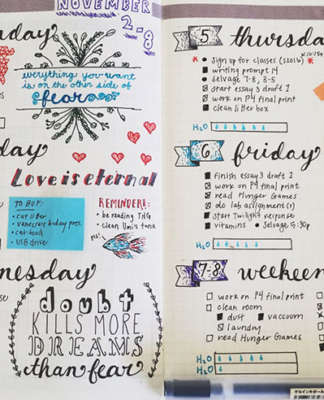 NOVEMBER
2-8
day
everything you want
is on the other side of
fear
day
Love is eternal
TO BUY:
cat litter
cat food
USB drive
REMINDERS:
be reading TNG
clean Umi's tank
nesday
doubt
KILLS MORE
DREAMS
than fear
5 thursda
sign up for classes (SS016)
writing prompt 14
selvage 7-8, 8-5
start essay 3 draft 2
work on P4 final print
clean litter box
H2O
6 friday
finish essay 3 draft 2
work on P4 final print
read Hunger Games
do lab assignment (1)
start Twilight response
vitamins selvage 4:30p
H2O
7-8 weeken
work on P4 final print
clean room
dust vaccuum
laundry
read Hunger Games
H2O
H2O